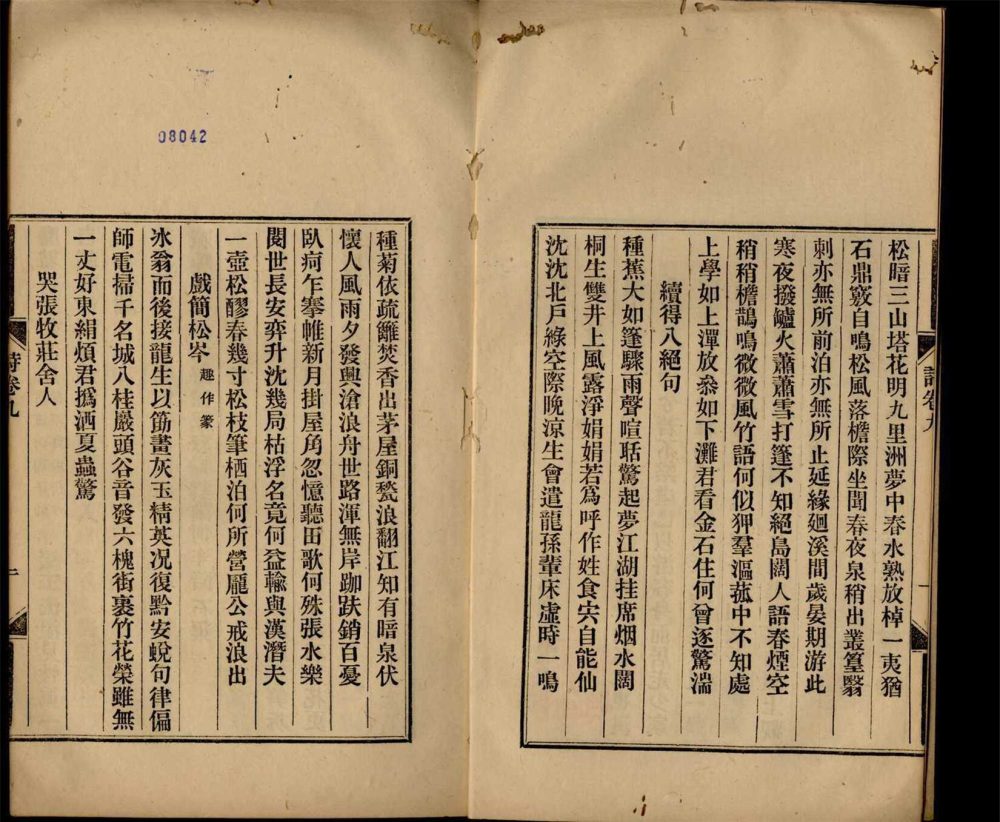 松暗三山塔花明九里洲夢中春水熟放棹一夷猶
石鼎竅自鳴松風落檐際坐聞春夜泉稍出叢篁翳
刺亦無所前泊亦無所止延緣廻溪間歲晏期游此
寒夜撥鑪火蕭蕭雪打篷不知絕島闊人語春煙空
稍稍檐鵲鳴微微風竹語何似狎羣漚菰中不知處
上學如上潬放叅如下灘君看金石住何曾逐驚湍
續得八絕句
種蕉大如篷驟雨聲喧聒驚起夢江湖挂席烟水闊
桐生雙井上風露淨娟娟若爲呼作姓食实自能仙
沈沈北戸綠空際晚涼生會遣龍孫輩床虛時一鳴
詩卷九
一
08042
種菊依疏籬焚香出茅屋銅甃浪翻江知有暗泉伏
懷人風雨夕發興滄浪舟世路渾無岸跏趺銷百憂
臥疴乍搴帷新月掛屋角忽憶聽田歌何殊張水樂
閱世長安弈升沈幾局枯浮名竟何益輸與漢潛夫
一壺松醪春幾寸松枝筆栖泊何所營龐公戒浪出
戲簡松岑 趣作篆
冰翁而後接龍生以筯畫灰玉精英况復黔安蛻句律偏
師電掃千名城八桂巖頭谷音發六槐街裏竹花榮雖無
一丈好東絹煩君撝洒夏蟲驚
哭張牧莊舍人
詩卷九
一